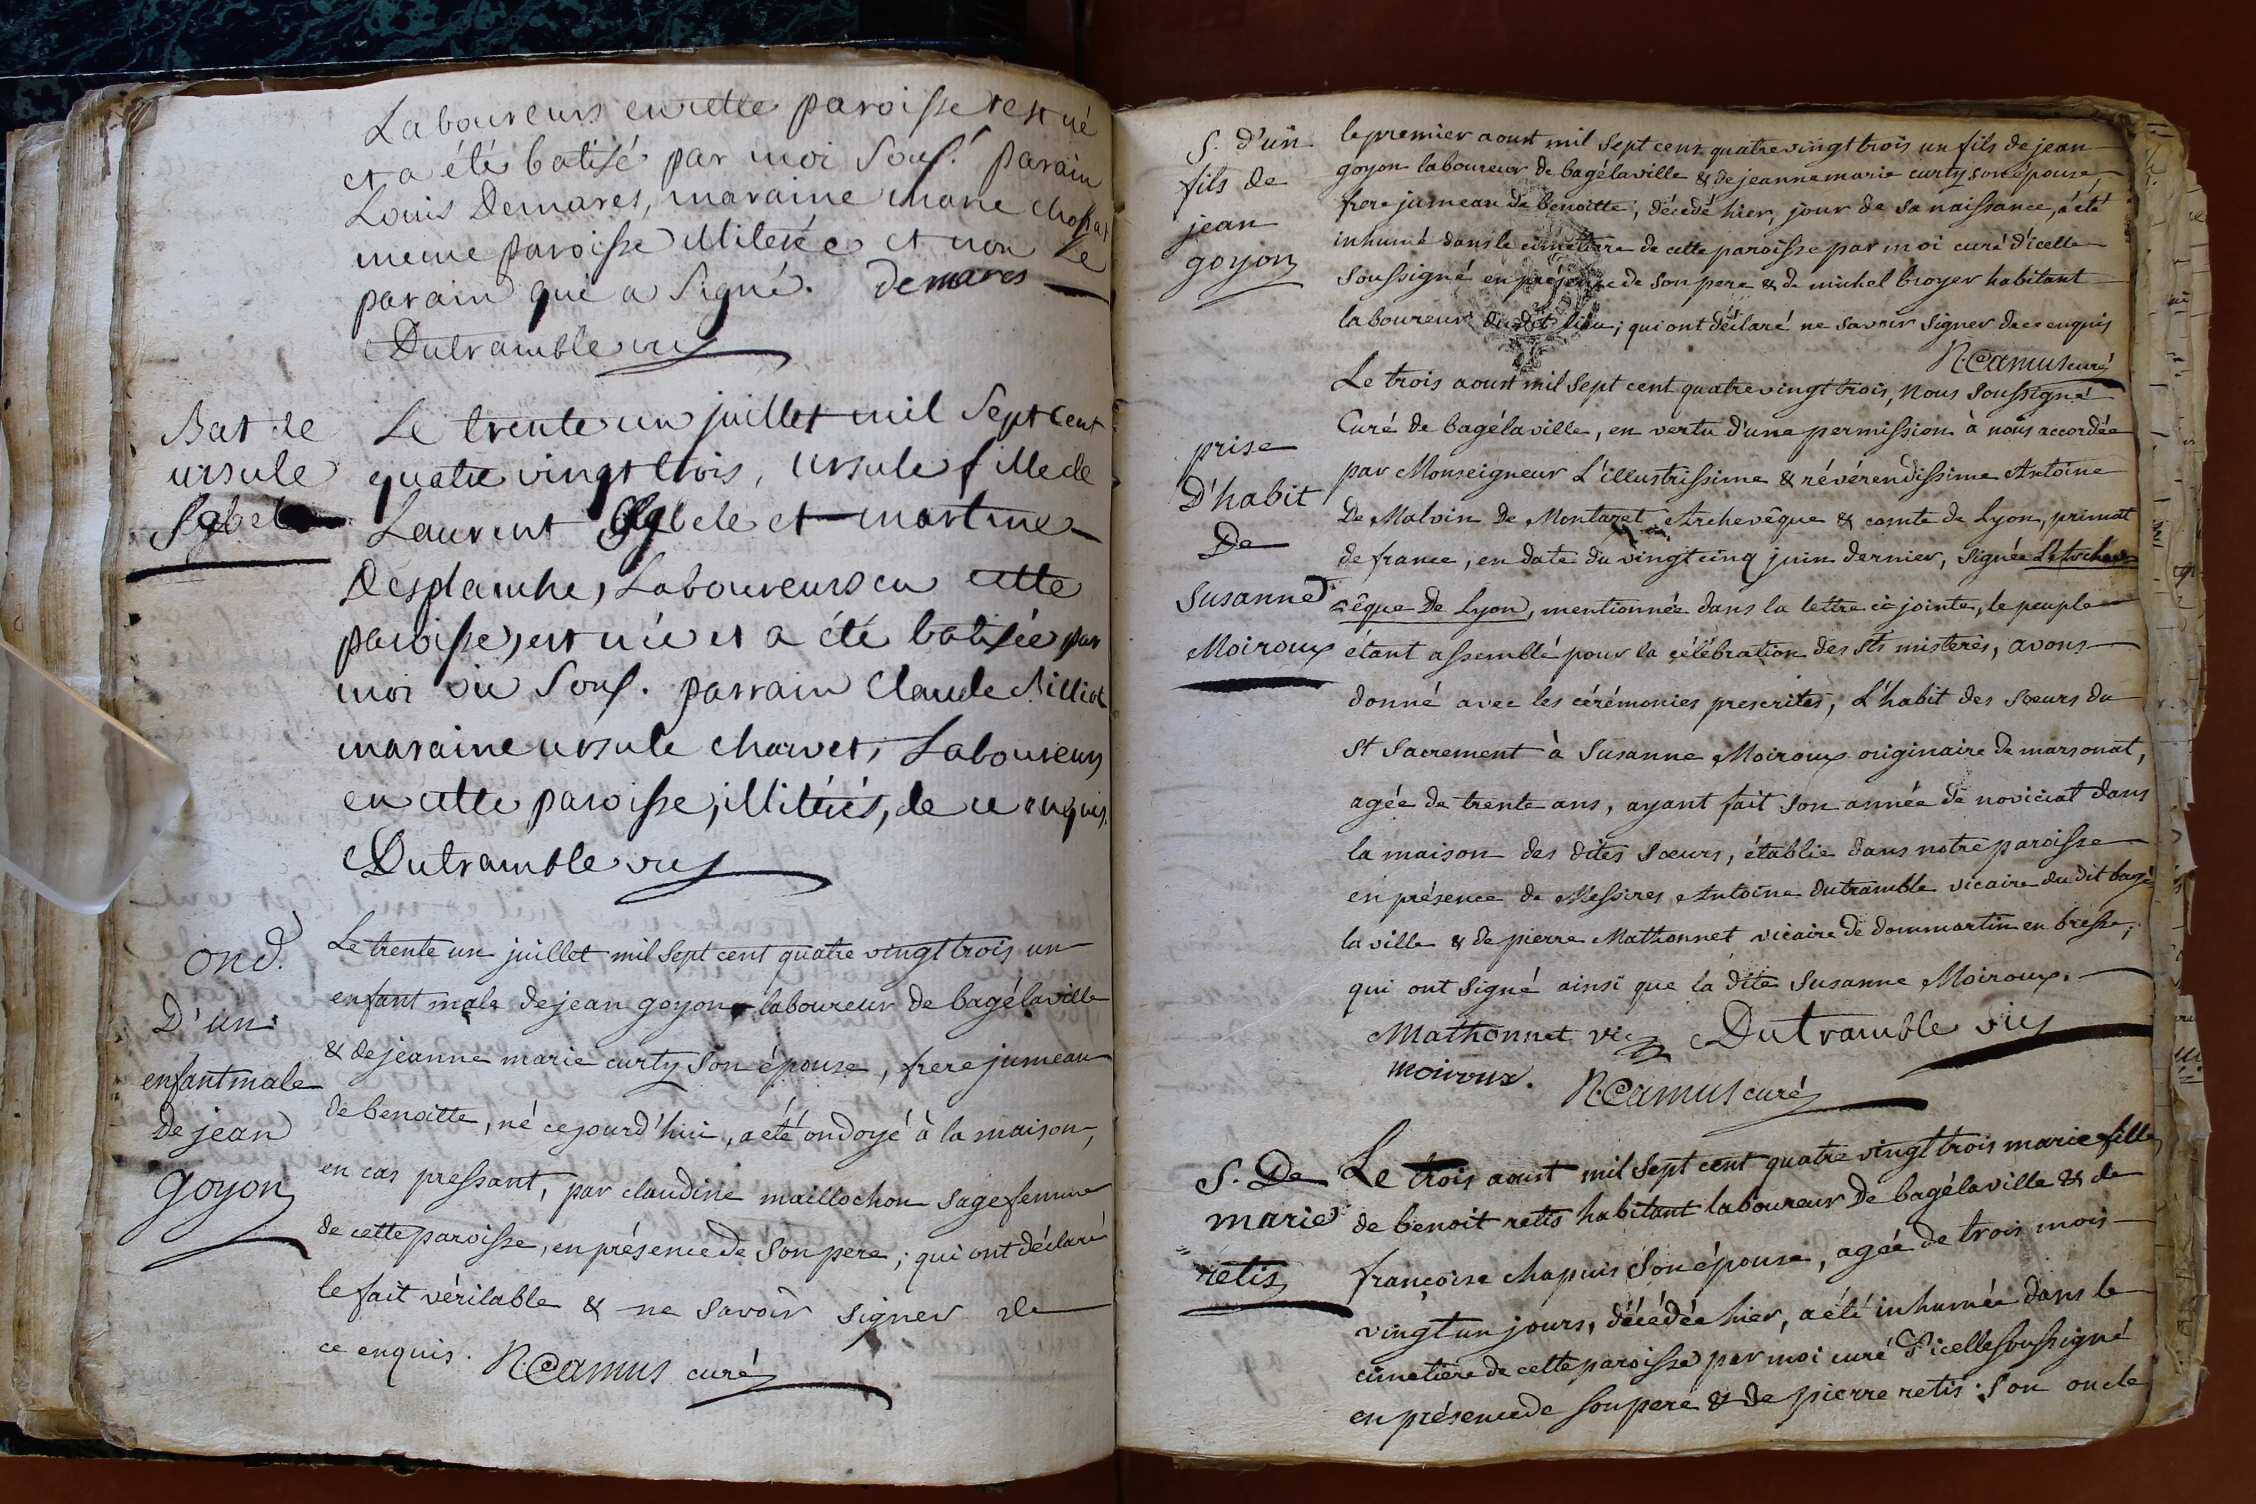 Laboureurs en cette paroisse est né
et a été batisé par moi Sous. parain
Louis Demares, maraine marie
meme paroisse illiterée et non Le
parain qui a Signé. Demares
Dutramble vic
Bat de
ursule
Le trente un juillet mil Sept Cent
quatre vingt trois, ursule fille de
Laurent et martine
Desplanche, Laboureurs en cette
paroisse, est née et a été batisée par
moi vic Sous. parrain Claude Billiot
maraine ursule charvet, Laboureurs
en cette paroisse, illitérés, de ce enquis.
Dutramble vic
ond.
D'un
enfant male
De jean
Goyon
Le trente un juillet mil Sept cent quatre vingt trois un
enfant male de jean goyon laboureur de bagélaville
& de jeanne marie curty Son épouse, frere jumeau
de benoitte, né cejourd'hui, a été ondoyé à la maison,
en cas pressant, par claudine maillochon Sage femme
de cette paroisse, en présence de Son pere; qui ont déclaré
le fait véritable & ne Savoir Signer de
ce enquis. N. Camus curé
S. d'un
fils de
jean
goyon
le premier aoust mil Sept cent quatre vingt trois un fils de jean
goyon laboureur de bagélaville & de jeanne marie curty son épouse,
frere jumeau de benoitte, décédé hier, jour de Sa naissance, a été
inhumé dans le cimetiere de cette paroisse par moi curé d'icelle
Soussigné en présence de Son pere & de michel broyer habitant
laboureur dudit lieu; qui ont déclaré ne Savoir Signer de ce enquis
N. Camus curé
prise
D'habit
De
Susanne
Moiroux
Le trois aoust mil Sept cent quatre vingt trois, Nous Soussigné
Curé de bagélaville, en vertu d'une permission à nous accordée
par Monseigneur L'illustrissime & révérendissime Antoine
De Malvin De Montazet Archevêque & comte de Lyon, primat
de france, en date du vingt cinq juin dernier, Signée L'Archev
-êque De Lyon, mentionnée dans la lettre ci jointe, le peuple
étant assemblé pour la célébration des Sts misteres, avons
donné avec les cérémonies prescrites, L'habit des Sœurs du
St Sacrement à Susanne Moiroux originaire de marsonat,
agée de trente ans, ayant fait Son année de noviciat dans
la maison des dites Sœurs, établie dans notre paroisse
en présence de Messires Antoine Dutramble vicaire du dit bagé
la ville & de pierre Mathonnet vicaire de dommartin en bresse,
qui ont Signé ainsi que la dite Susanne Moiroux.
Mathonnet vic Dutramble vic
moiroux. N. Camus curé
S. De
marie
retis
Le trois aoust mil Sept cent quatre vingt trois marie fille
de benoit retis habitant laboureur De bagélaville & de
françoise chapuis Son épouse, agée de trois mois
vingt un jours, décédée hier, a été inhumée dans le
cimetiere de cette paroisse par moi curé d'icelle Soussigné
en présence de Son pere & de pierre retis Son oncle